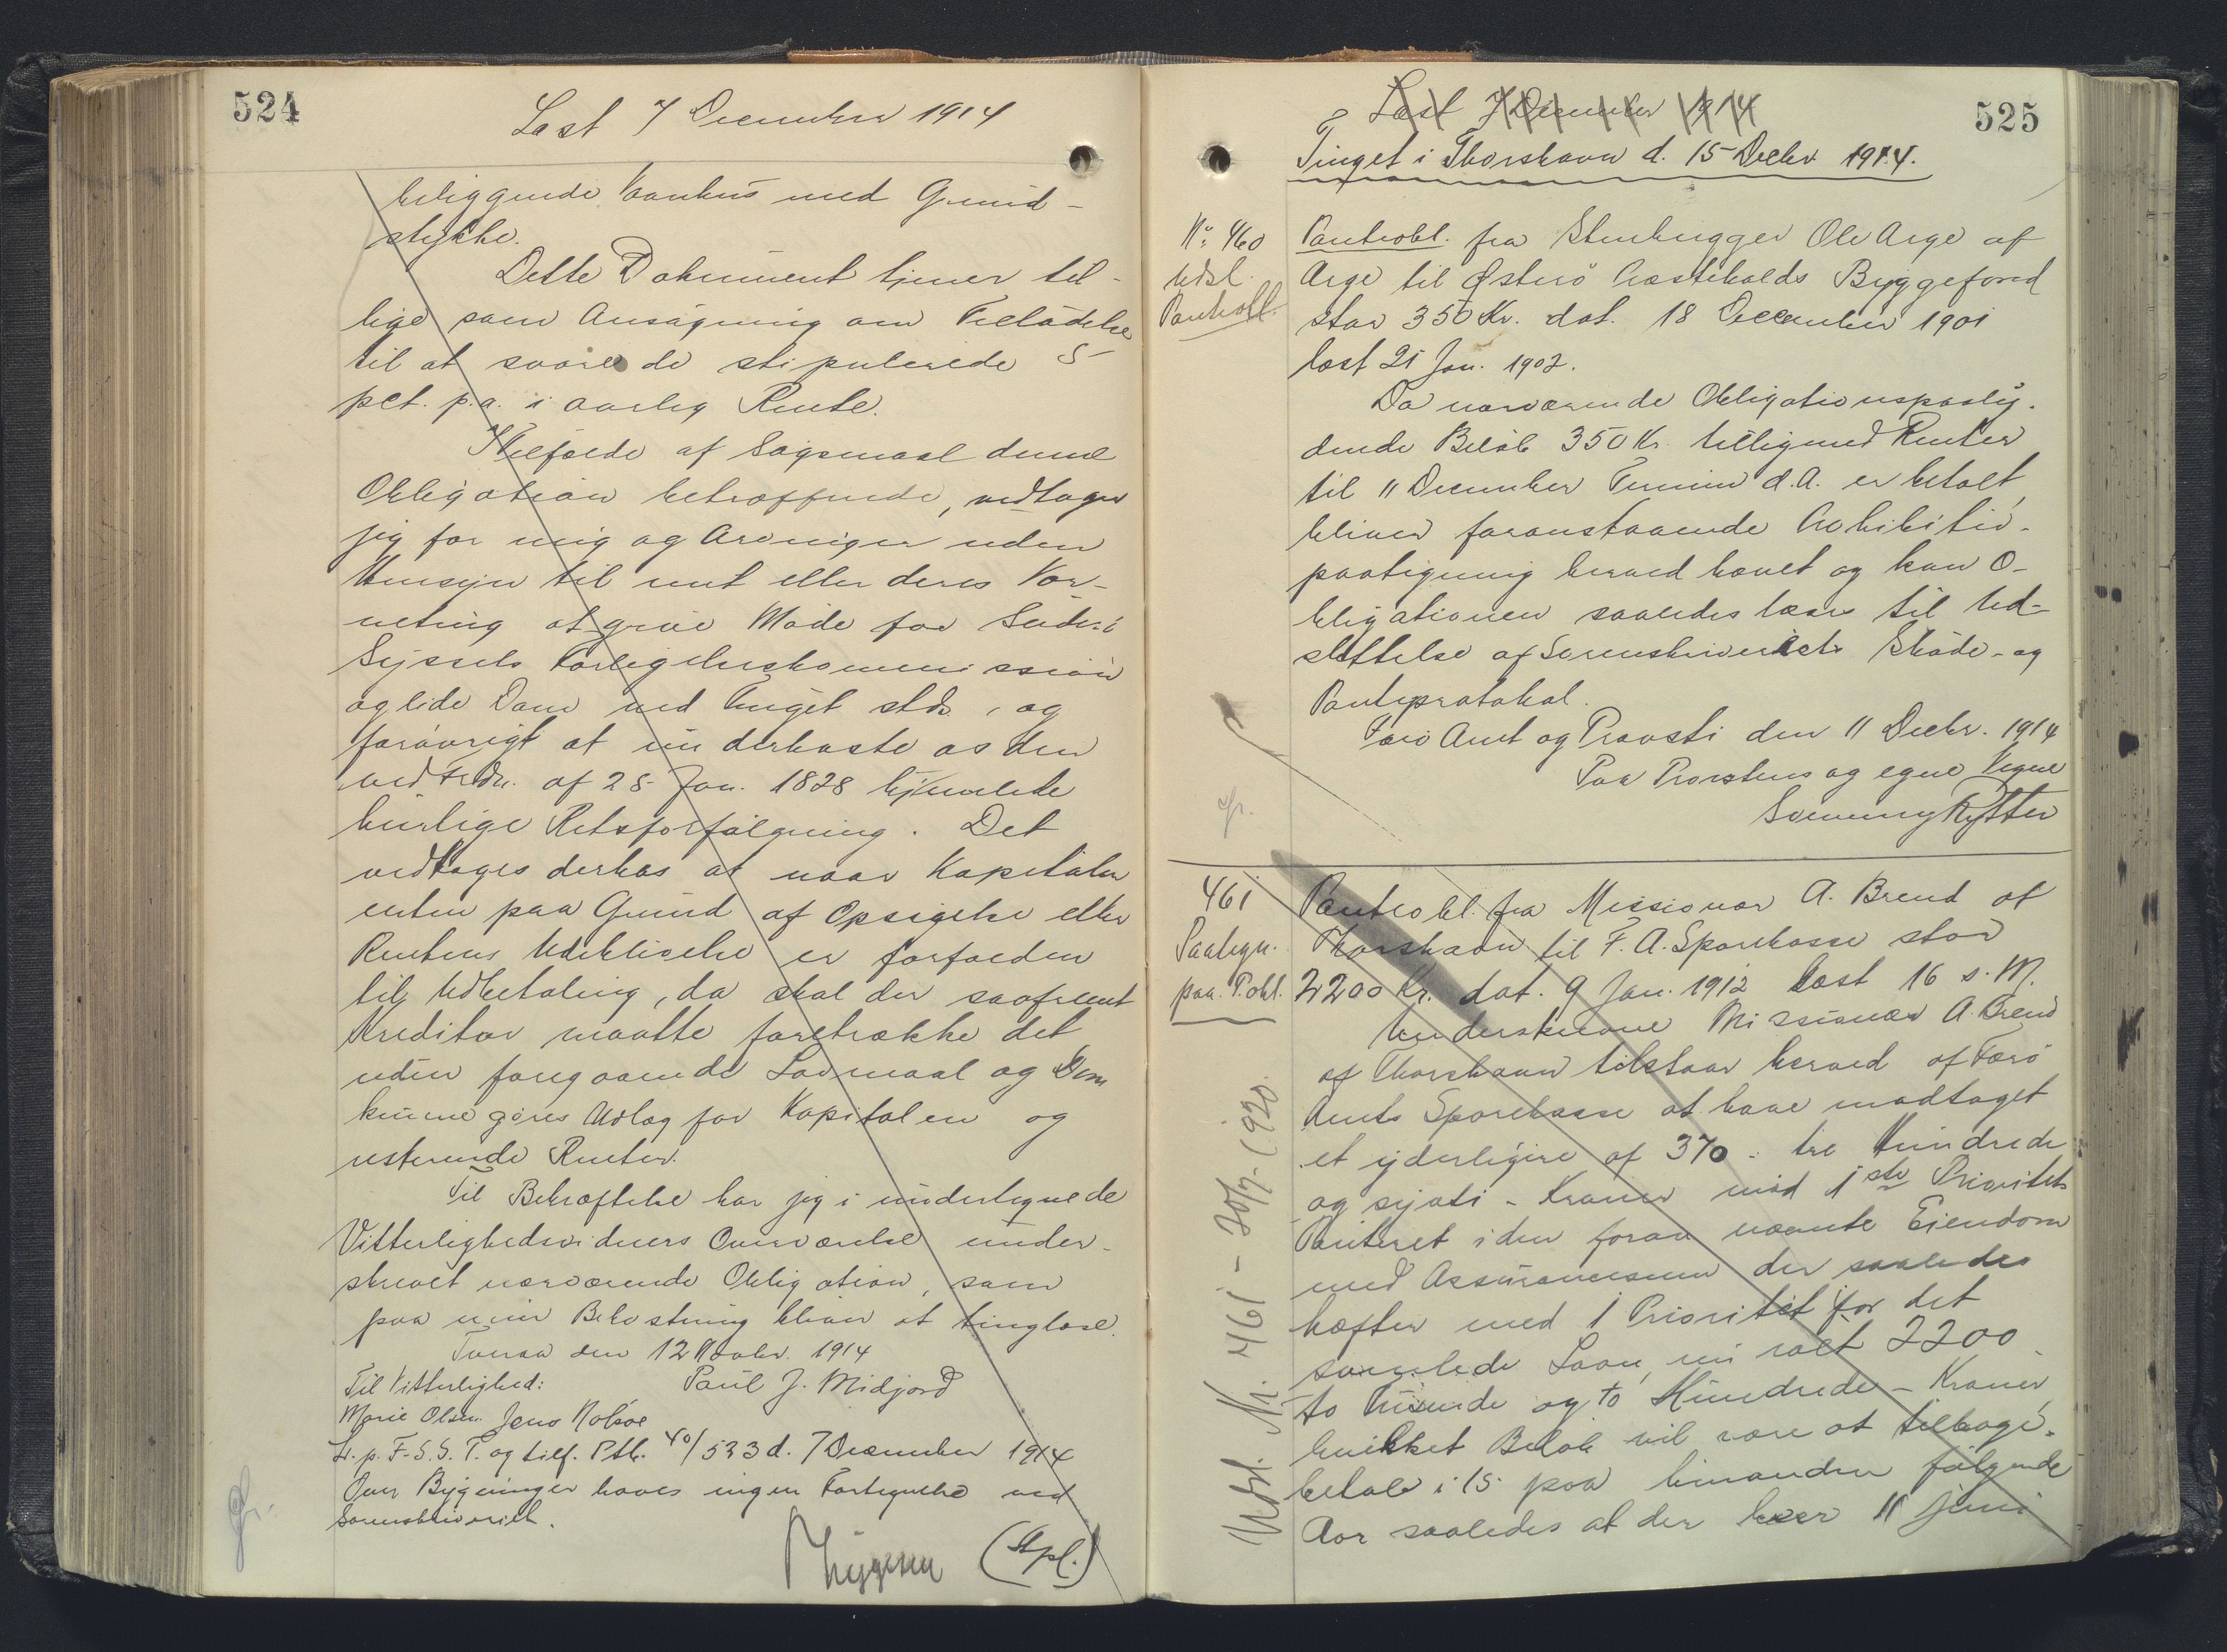 524
Læst 7 December 1914
beliggende Vaanhus med Grund-
stykke.
Dette Dokument tjener til-
lige som Ansøgning om Tilladelse
til at svare de stipulerede 5
pct. p.a. i aarlig Rente.
I Tilfælde af Søgsmaal denne
Obligation betræffende, vedtager
jeg for mig og Arvinger uden
Hensyn til mit eller deres Vær-
neting at give Møde for Suderø
Syssels Forligelseskommission
og lide Dom ved Tinget stds, og
forøvrigt at underkaste os den
ved Frdn. af 25 Jan. 1828 hjemlede
hurtige Retsforfølgning. Det
vedtages derhos at naar Kapitalen
enten paa Grund af Opsigelse eller
Rentens Udeblivelse er forfalden
til Udbetaling, da skal der saafremt
Kreditor maatte foretrække det
uden foregaaende Lovmaal og Dom
kunne gøres Udlæg for Kapitalen og
resterende Renter.
Til Bekræftelse har jeg i undertegnede
Vitterlighedsvidners Overværelse under-
skrevet nærværende Obligation, som
paa min Bekostning bliver at tinglæse.
Tveraa den 12 Novbr. 1914
Til Vitterlighed: Poul J. Midjord
Marie Olsen. Jens Nolsøe
L. p. F. S. S. T. og tilf. Ptb. 40/533 d. 7 December 1914
Over Bygninger haves ingen Fortegnelse ved
Sorenskriveriet.
Thygesen (Stpl.)
525
Læst 7 December 1914
Tinget i Thorshavn d. 15 Decbr 1914.
No. 460
Udsl.
Pantobl.
Panteobl. fra Stenhugger Ole Arge af
Arge til Østerø Præstekalds Byggefond
stor 350 Kr. dat. 18 December 1901
læst 21 Jan. 1902.
Da nærværende Obligationspaaly-
dende Beløb 350 Kr. tilligemed Renter
til 11 December Termin d.A. er betalt,
bliver foranstaaende Prohibitiv-
paategning herved hævet og kan O-
bligationen saaledes læses til Ud-
slettelse af Sorenskriveriets Skøde- og
Panteprotokol.
Færø Amt og Provsti den 11 Decbr. 1914
Paa Provstens og egne Vegne
Svenning Rytter
461
Paategn.
paa P.obl.
Panteobl. fra Missionær A. Brend af
Thorshavn til F. A. Sparekasse stor
2200 Kr. dat. 9 Jan. 1912 læst 16 s. M.
Underskrevne Missionær A. Brend
af Thorshavn tilstaar herved af Færø
Amts Sparekasse at have modtaget
et yderligere af 370 - tre Hundrede
og syvti - Kroner mod 1ste Prioritets
Panteret i den foran nævnte Ejendom
med Assurancesum der saaledes
hæfter med 1 Prioritet for det
samlede Laan, nu ialt 2200
to Tusinde og to Hundrede - Kroner,
hvilket Beløb vil være at tilbage-
betale i 15 paa hinanden følgende
Aar saaledes at der hver 11 Juni
Udsl. Nr. 461 - 20/7 - 1920.